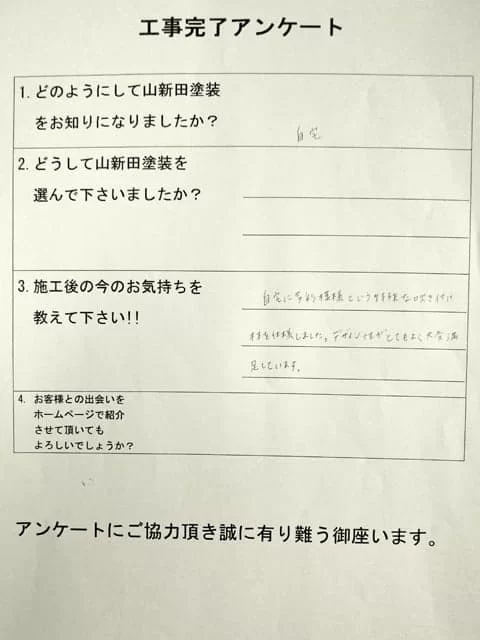 工事完了アンケート
1. どのようにして山新田塗装
をお知りになりましたか?
自宅
2. どうして山新田塗装を
選んで下さいましたか?
3. 施工後の今のお気持ちを
教えて下さい!!
自宅に多彩模様という特殊な吹き付け
材を仕様しました。デザイン性がとてもよく大変満
足しています。
4. お客様との出会いを
ホームページで紹介
させて頂いても
よろしいでしょうか?
アンケートにご協力頂き誠に有り難う御座います。